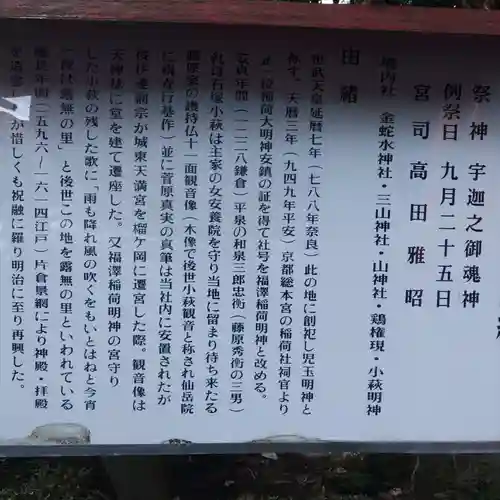 祭神 宇迦之御魂神
例祭日 九月二十五日
宮司 高田雅昭
境内社 金蛇水神社・三山神社・山神社・鶏権現・小萩明神
由緒
桓武天皇延暦七年（七八八年奈良）此の地に創祀し児玉明神と
称す。天暦三年（九四九年平安）京都総本宮の稲荷社祠官より
正一位稲荷大明神安鎮の証を得て社号を福澤稲荷明神と改める。
安貞年間（一二二八鎌倉）平泉の和泉三郎忠衡（藤原秀衡の三男）
乳母石塚小萩は主家の女安養院を守り当地に留まり待ち来たる
藤原家の護持仏十一面観音像（木像で後世小萩観音と称され仙岳院
に現存行基作）並に菅原真実の真筆は当社内に安置されたが
後伊達綱宗が城東天満宮を榴ケ岡に遷宮した際。観音像は
天神社に堂を建て遷座した。又福澤稲荷明神の宮守り
した小萩の残した歌に「雨も降れ風の吹くをもいとはねと今宵
一夜は露無の里」と後世この地を露無の里といわれている
慶長年間（一五九六〜一六一四江戸）片倉景綱により神殿・拝殿
を造営 が惜しくも祝融に罹り明治に至り再興した。